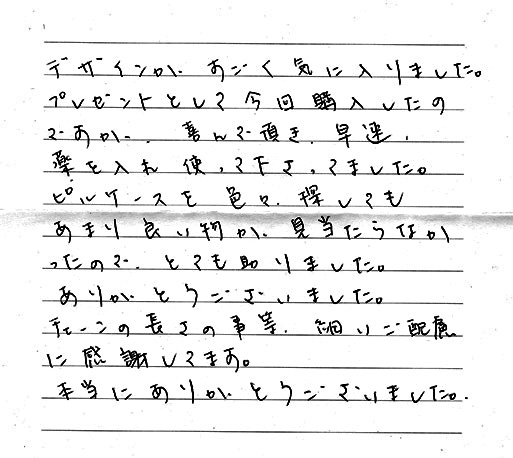 デザインが、すごく気に入りました。
プレゼントとして今回購入したの
ですが、喜んで頂き、早速、
薬を入れ使って下さってました。
ピルケースを色々、探しても
あまり良い物が、見当たらなか
ったので、とても助りました。
ありがとうございました。
チェーンの長さの事等、細いご配慮
に感謝してます。
本当にありがとうございました。